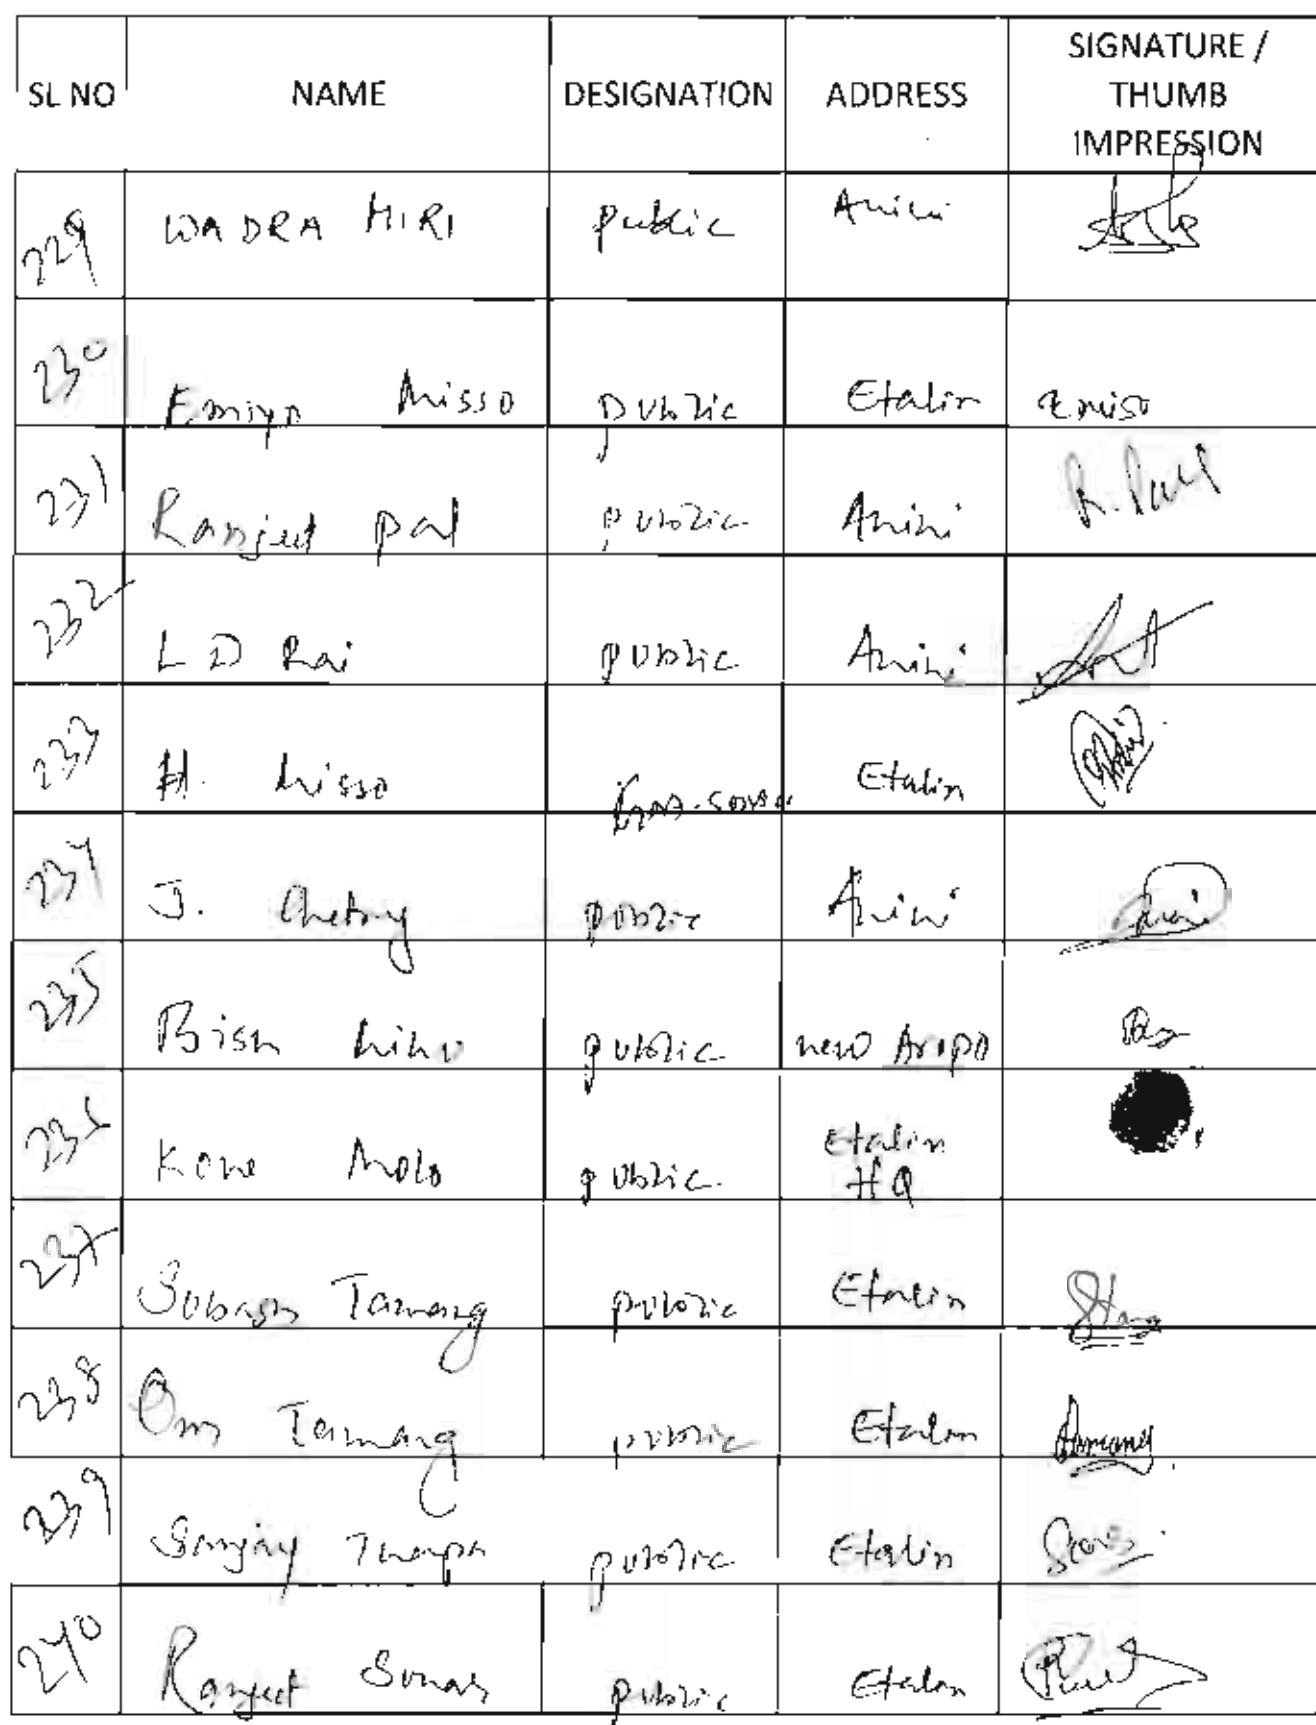 SL NO NAME DESIGNATION ADDRESS SIGNATURE / THUMB IMPRESSION
229 WADRA MIRI public Anini
230 Emiyo Misso public Etalin Emiso
231 Ranjeet Pal public Anini R. Paul
232 L D Rai public Anini
233 H. Misso Etalin
234 J. Chetry public Anini
235 public new Aropo
236 Kone Molo public Etalin HQ
237 Subash Tamang public Etalin
238 Om Tamang public Etalin
239 Sanjay Thapa public Etalin
240 Ranjeet Sonar public Etalin